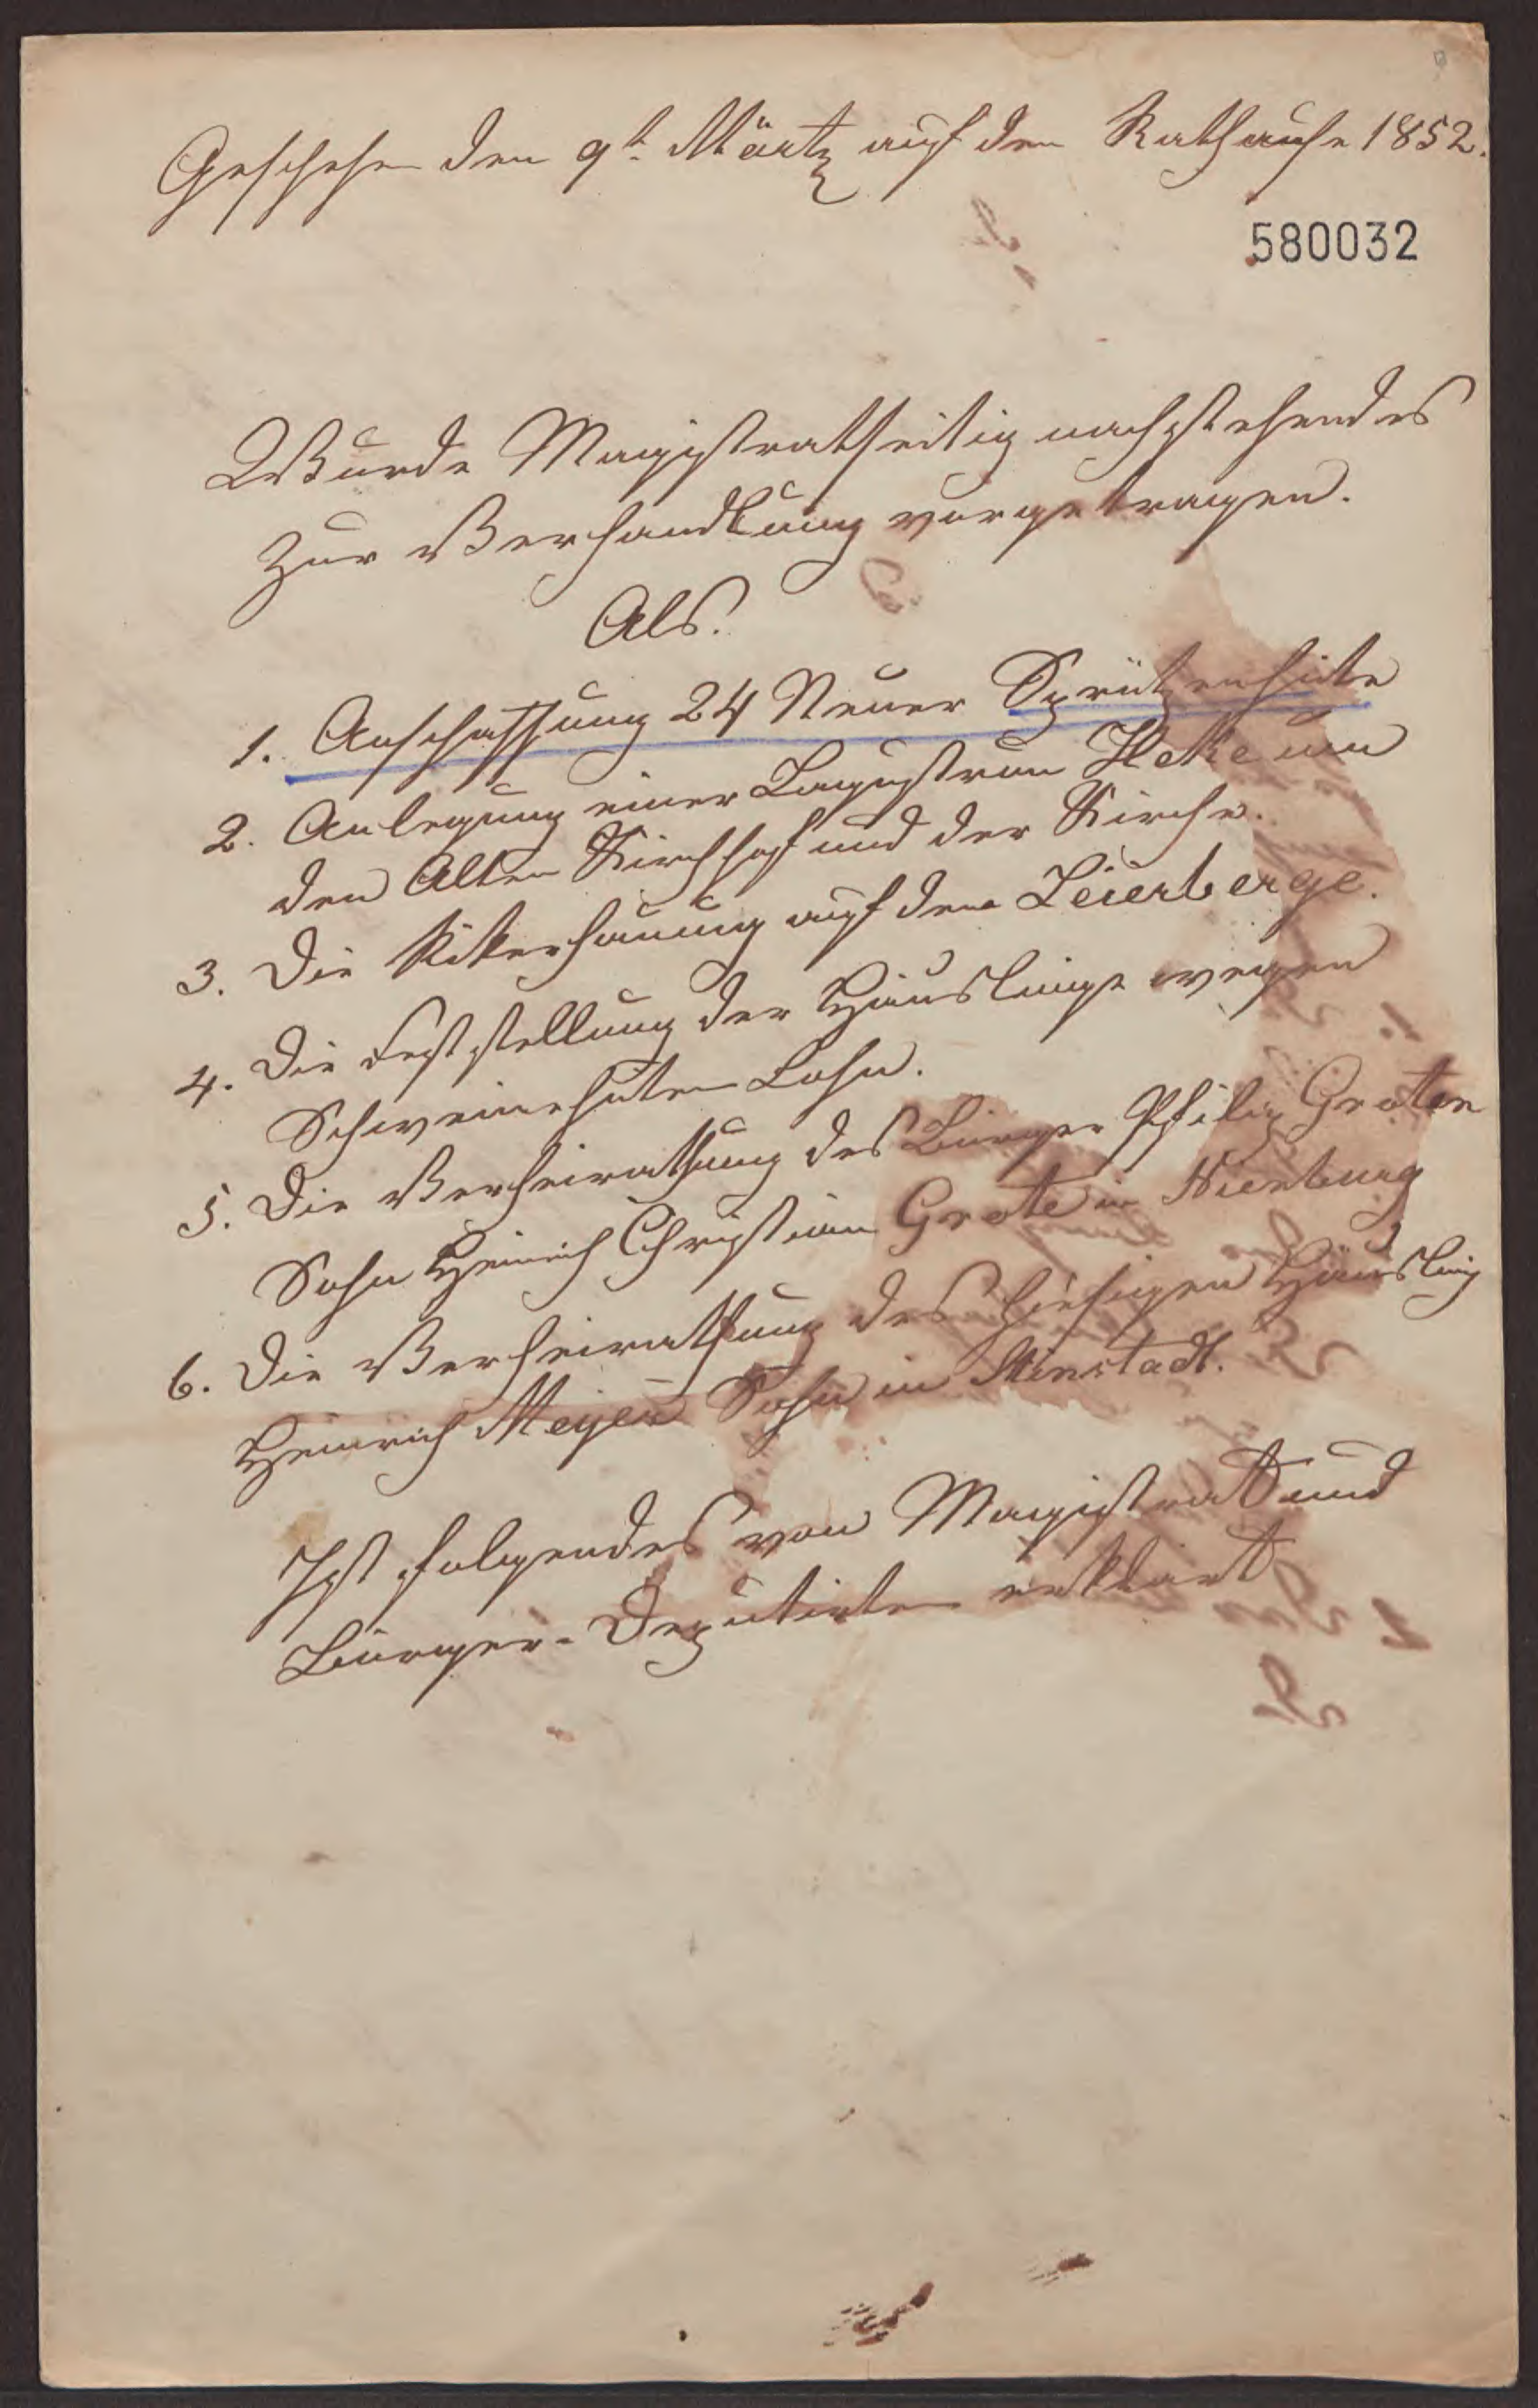 Geschehen den 9t. Märtz auf den Rathause 1852.
580032
Wurde Magistratseitig nachstehendes
zur Verhandlung vorgetragen.
Als.
1. Anschaffung 24 Neuer Sprützenhüte
2. Anlegung einer Lagustrum Heke um
den Alten Kirchhof und der Kirche.
3. Die auf den Leierberge.
4. Die Feststellung der Häuslinge wegen
Schweinehüten Lohn.
5. Die Verheirathung des Bürger Philip Groten
Sohn Heinrich Christian Grote in Nienburg
6. Die Verheirathung des hiesigen Häusling
Heinrich Meyer Sohn in
Ist folgendes von Magistrat und
Bürger-Deputirten erklärt